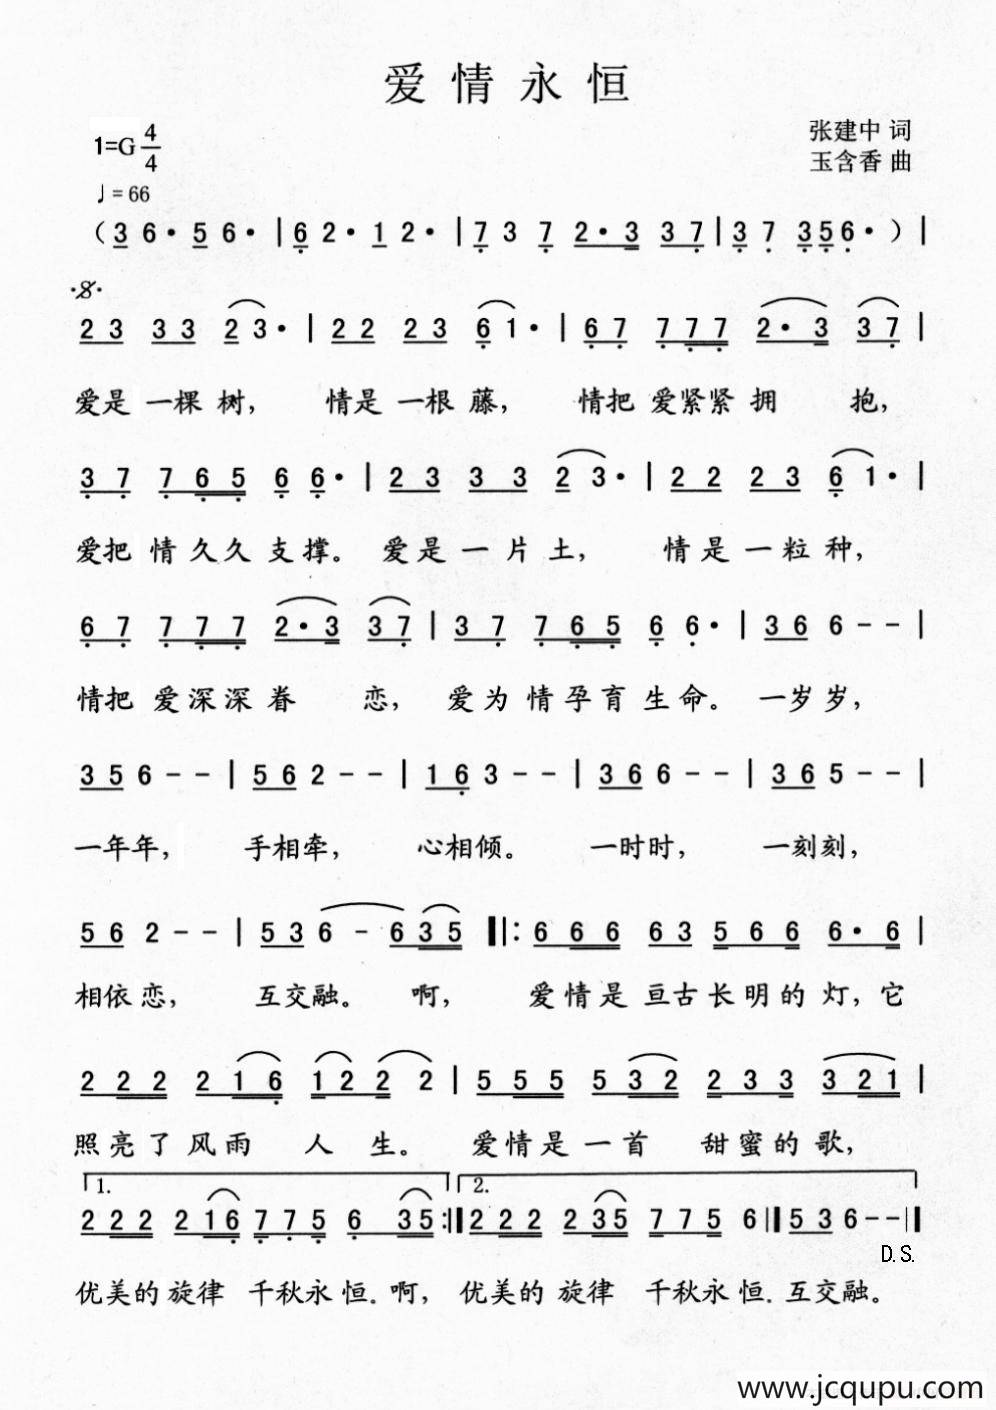 爱情永恒
1=G 4/4
张建中 词
玉含香 曲
♩=66
（3 6· 5 6· | 6 2· 1 2· | 7 3 7 2·3 37 | 3 7 3 5 6· ）|
23 33 2 3· | 22 23 6 1· | 67 777 2·3 37 |
爱是 一棵 树， 情是 一根 藤， 情把 爱紧紧 拥 抱，
37 765 6 6· | 23 33 2 3· | 22 23 6 1· |
爱把 情久久 支撑。 爱是 一片 土， 情是 一粒 种，
67 777 2·3 37 | 37 765 6 6· | 36 6 - - |
情把 爱深深 眷 恋， 爱为 情孕育 生命。 一岁岁，
35 6 - - | 56 2 - - | 16 3 - - | 36 6 - - | 36 5 - - |
一年年， 手相牵， 心相倾。 一时时， 一刻刻，
56 2 - - | 53 6 - 635 ‖: 666 63 566 6·6 |
相依恋， 互交融。 啊， 爱情是 亘古长明的 灯，它
222 216 122 2 | 555 532 233 321 |
照亮了 风雨 人 生。 爱情是 一首 甜蜜的歌，
1. 2.
222 216 775 6 35 :‖ 222 235 775 6 ‖ 53 6 - - ‖
D.S.
优美的 旋律 千秋永恒.啊， 优美的 旋律 千秋永恒.互交融。
www.jcqupu.com